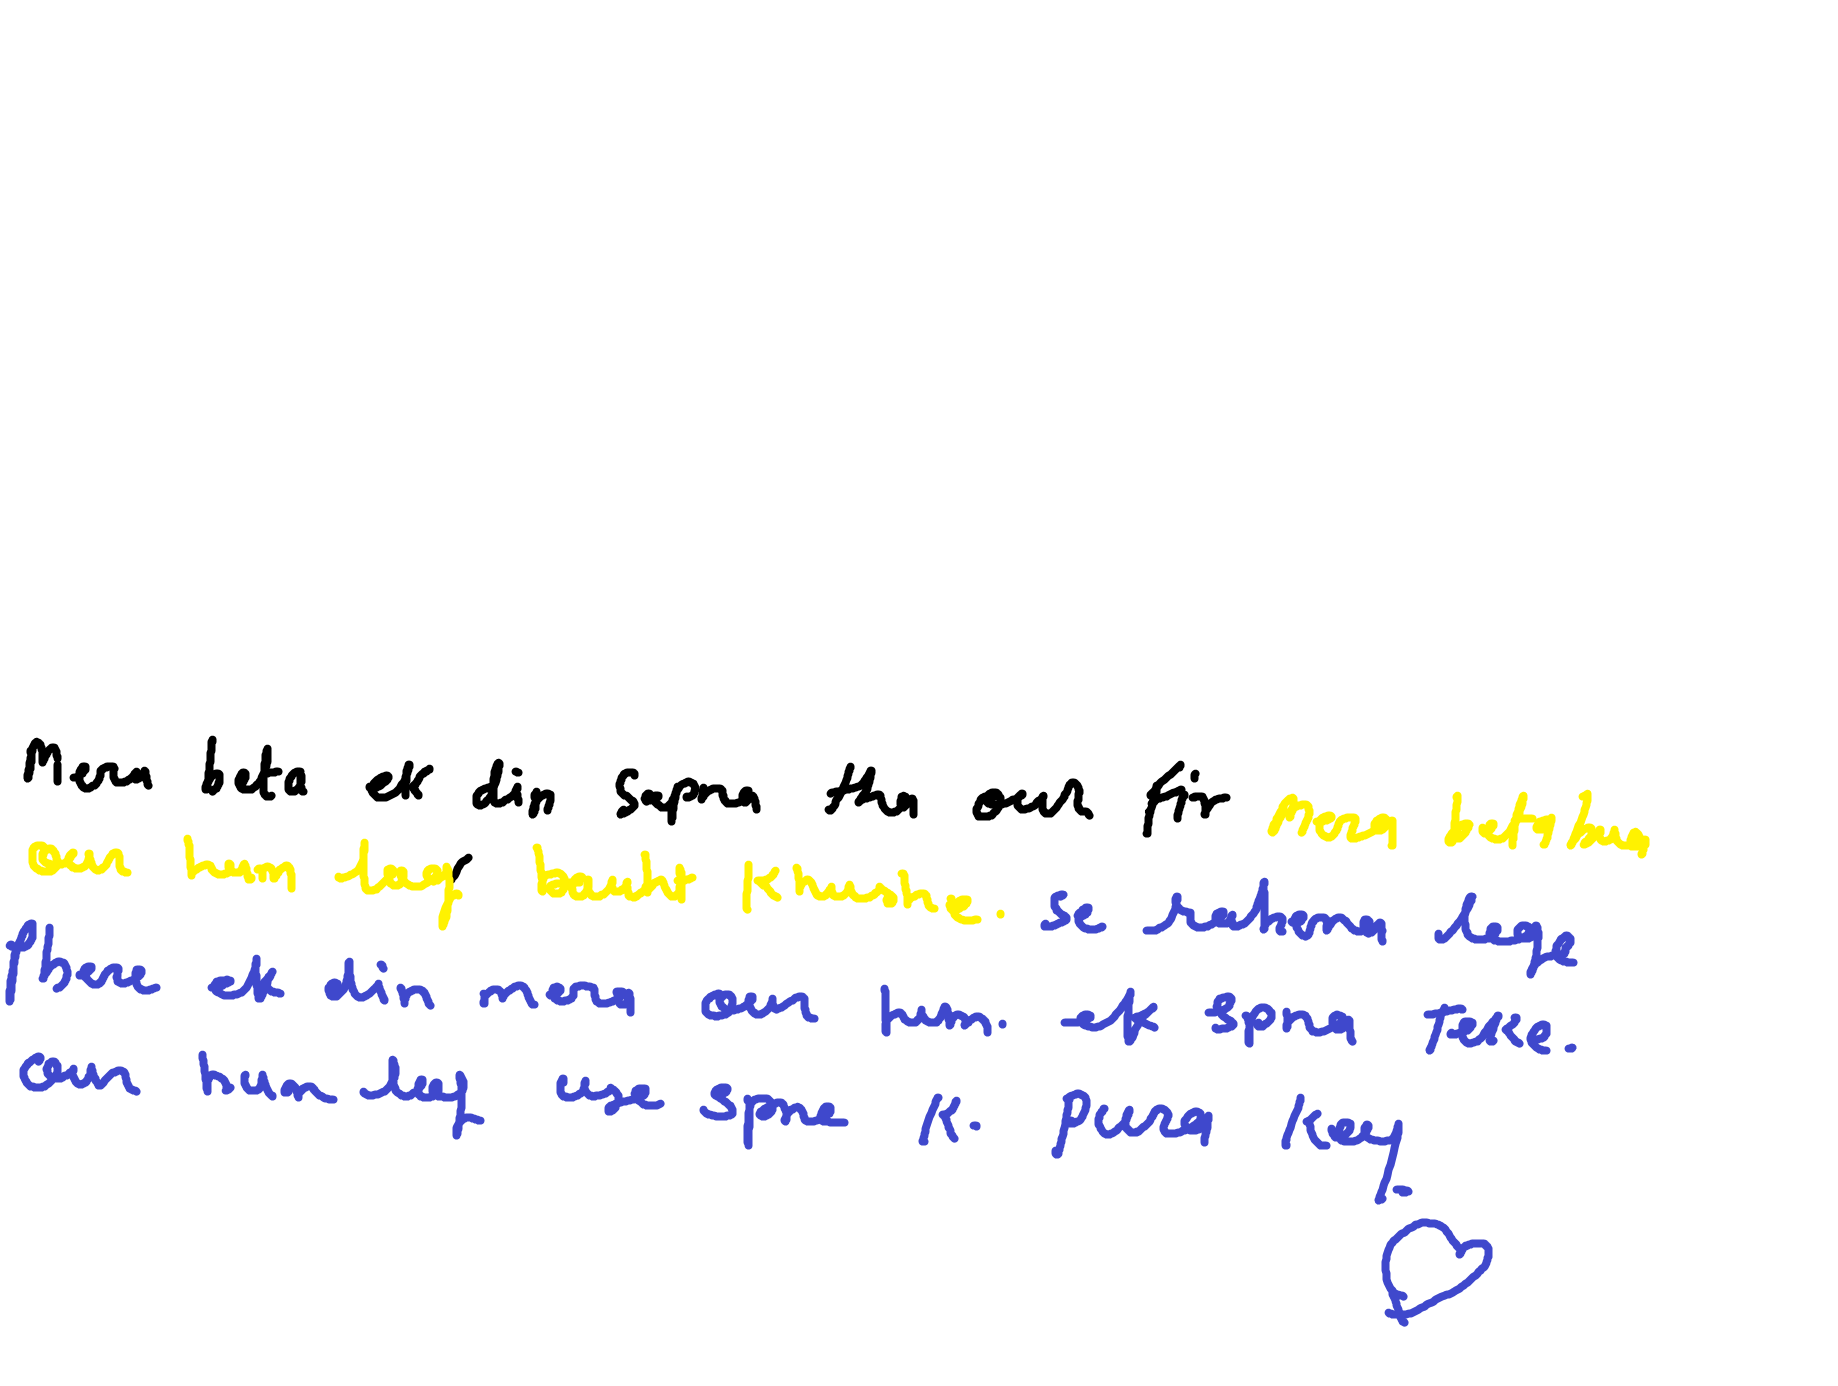 Mera beta ek din sapna tha our fir Mera beta hua
our hum log bauht khushe. se rahena lege
Phere ek din mera our hum. ek spna Teke.
our hum log use spne K. pura key.